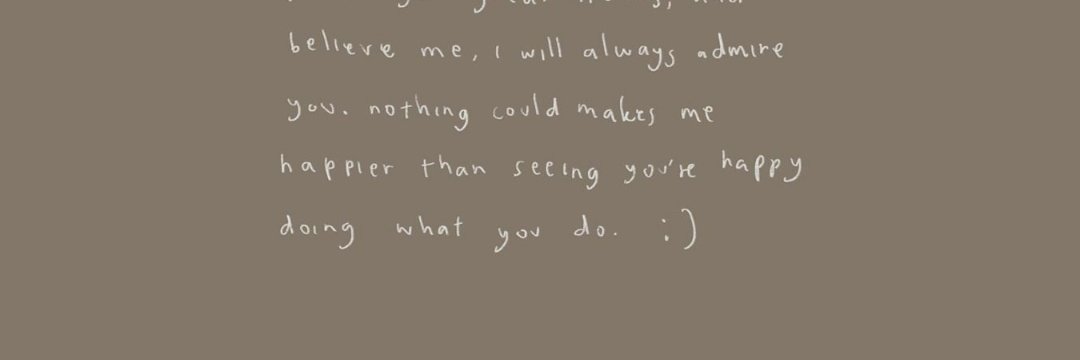 believe me, i will always admire
you. nothing could makes me
happier than seeing you're happy
doing what you do. :)